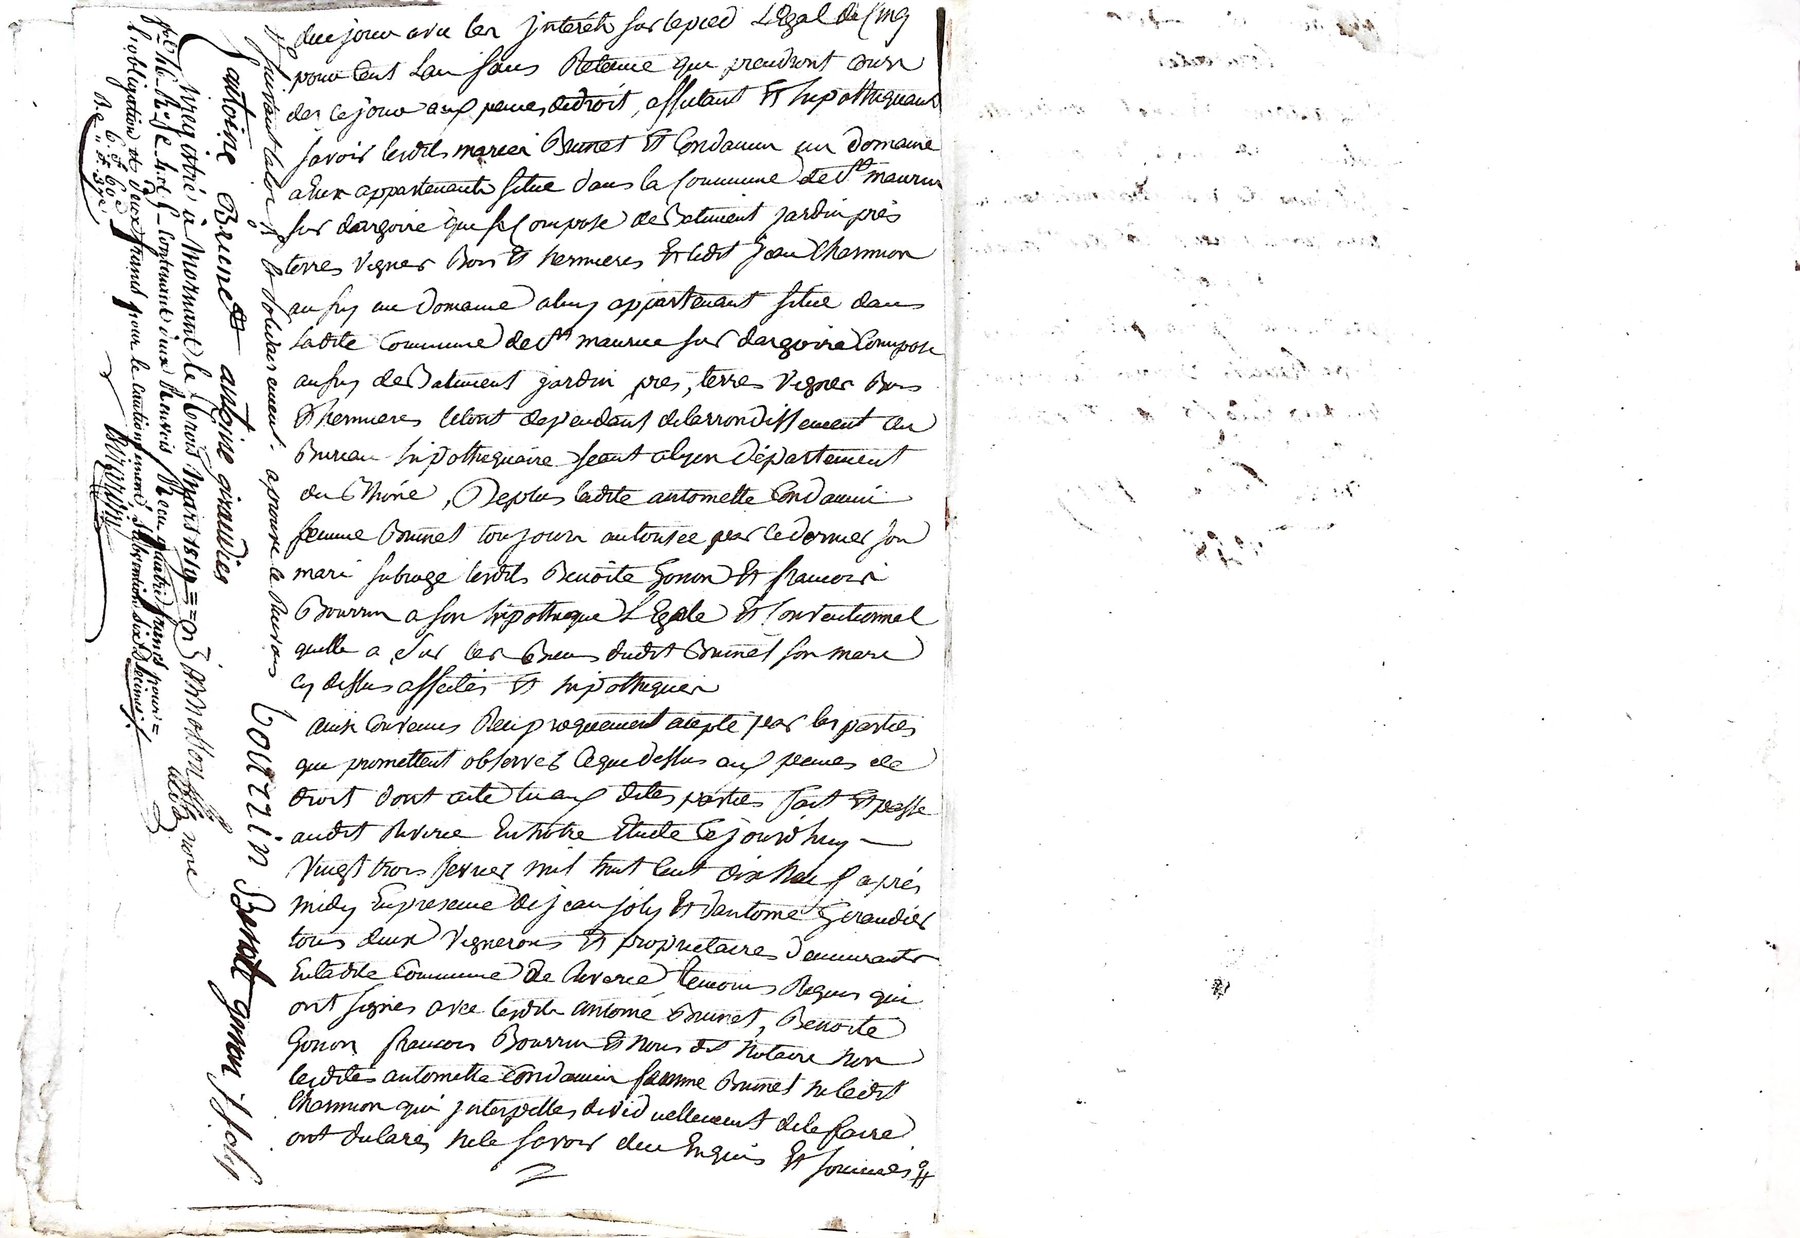 du jour avec les jnterets sur le pied Legal de Cinq
pour Cent L'an sans Retenue qui prendront cours
des ce jour aux peines de droit, affectant Et hipothequant
savoir lesdits mariés Brunet Et Condamin un Domaine
a Eux appartenants situé dans la Commune de St maurice
sur dargoire qui se Compose de Batiment jardin près
terres vignes Bois Et hermieres Et ledit Jean Charmion
aussy un Domaine a luy appartenant situé dans
Ladite Commune de St maurice sur dargoire Composé
aussy de Batiment jardin près, terres vignes Bois
Et hermieres le tout dependant de larrondissement du
Bureau hipothequaire seant a lyon Département
du Rhône, Deplus ladite antoinette Condamin
femme Brunet toujours autorisée par Ce dernier son
mari subroge lesdits Benoite Gonon Et francois
Bourrin a son hipotheque Légale Et Conventionnel
quelle a sur les Biens dudit Brunet son mari
Cy dessus affectés Et hipothequés
ainsi Convenu Reciproquement accepté par les parties
qui promettent observer Ceque dessus aux peines de
droit dont acte lu aux dites parties fait Et passé
audit Riverie En notre Etude Cejourd'huy
vingt trois fevrier mil huit Cent dix Neuf après
midy En presence de jean joly Et d'antoine Giraudier
tous deux vignerons Et proprietaires demeurants
En ladite Commune de Riverie, temoins Requis qui
ont signés avec lesdits antoine Brunet, Benoite
Gonon francois Bourrin Et Nous dt Notaire non
lesdites antoinette Condamin femme Brunet ni ledit
Charmion qui jnterpellés dividuellement de le faire
ont declarés ne le savoir dece Enquis Et sommés #
# suivant la loi Et solidairement. aprouvé le Renvois
antoine Brunet antoine giraudier
bourrin Benoit gonon j. Joly
Enregistré à Mornant le trois Mars 1819
contenant deux Renvois Reçu quatre francs pour
l'obligation et deux francs pour le Cautionnement, Subvention six Decimes